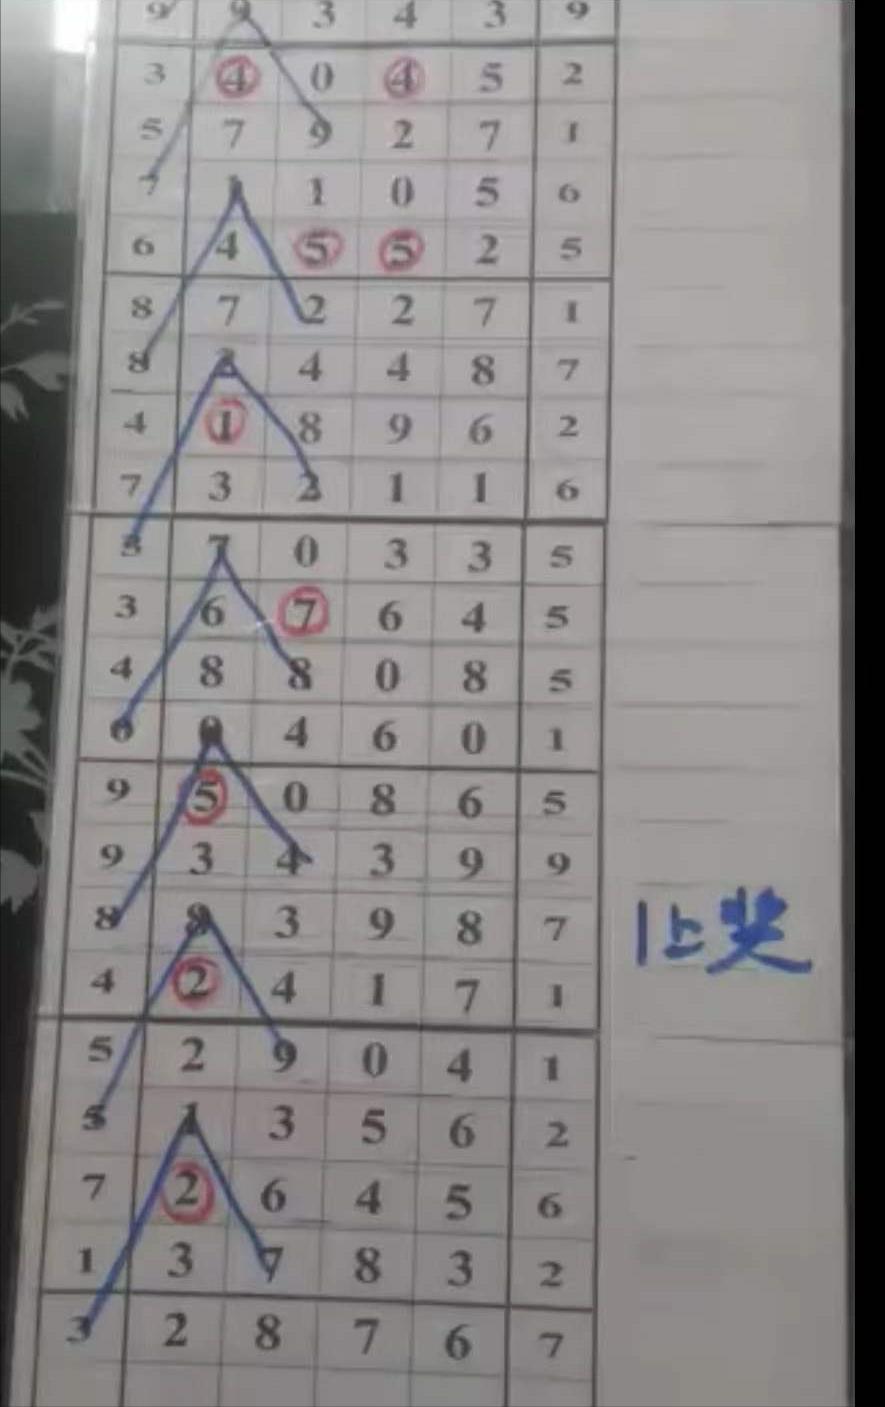 9 9 3 4 3 9
3 4 0 4 5 2
5 7 9 2 7 1
7 1 1 0 5 6
6 4 5 5 2 5
8 7 2 2 7 1
8 4 4 8 7
4 1 8 9 6 2
7 3 2 1 1 6
7 0 3 3 5
3 6 7 6 4 5
4 8 8 0 8 5
4 6 0 1
9 5 0 8 6 5
9 3 4 3 9 9
8 3 9 8 7
上奖
4 2 4 1 7 1
5 2 9 0 4 1
1 3 5 6 2
7 2 6 4 5 6
1 3 7 8 3 2
3 2 8 7 6 7